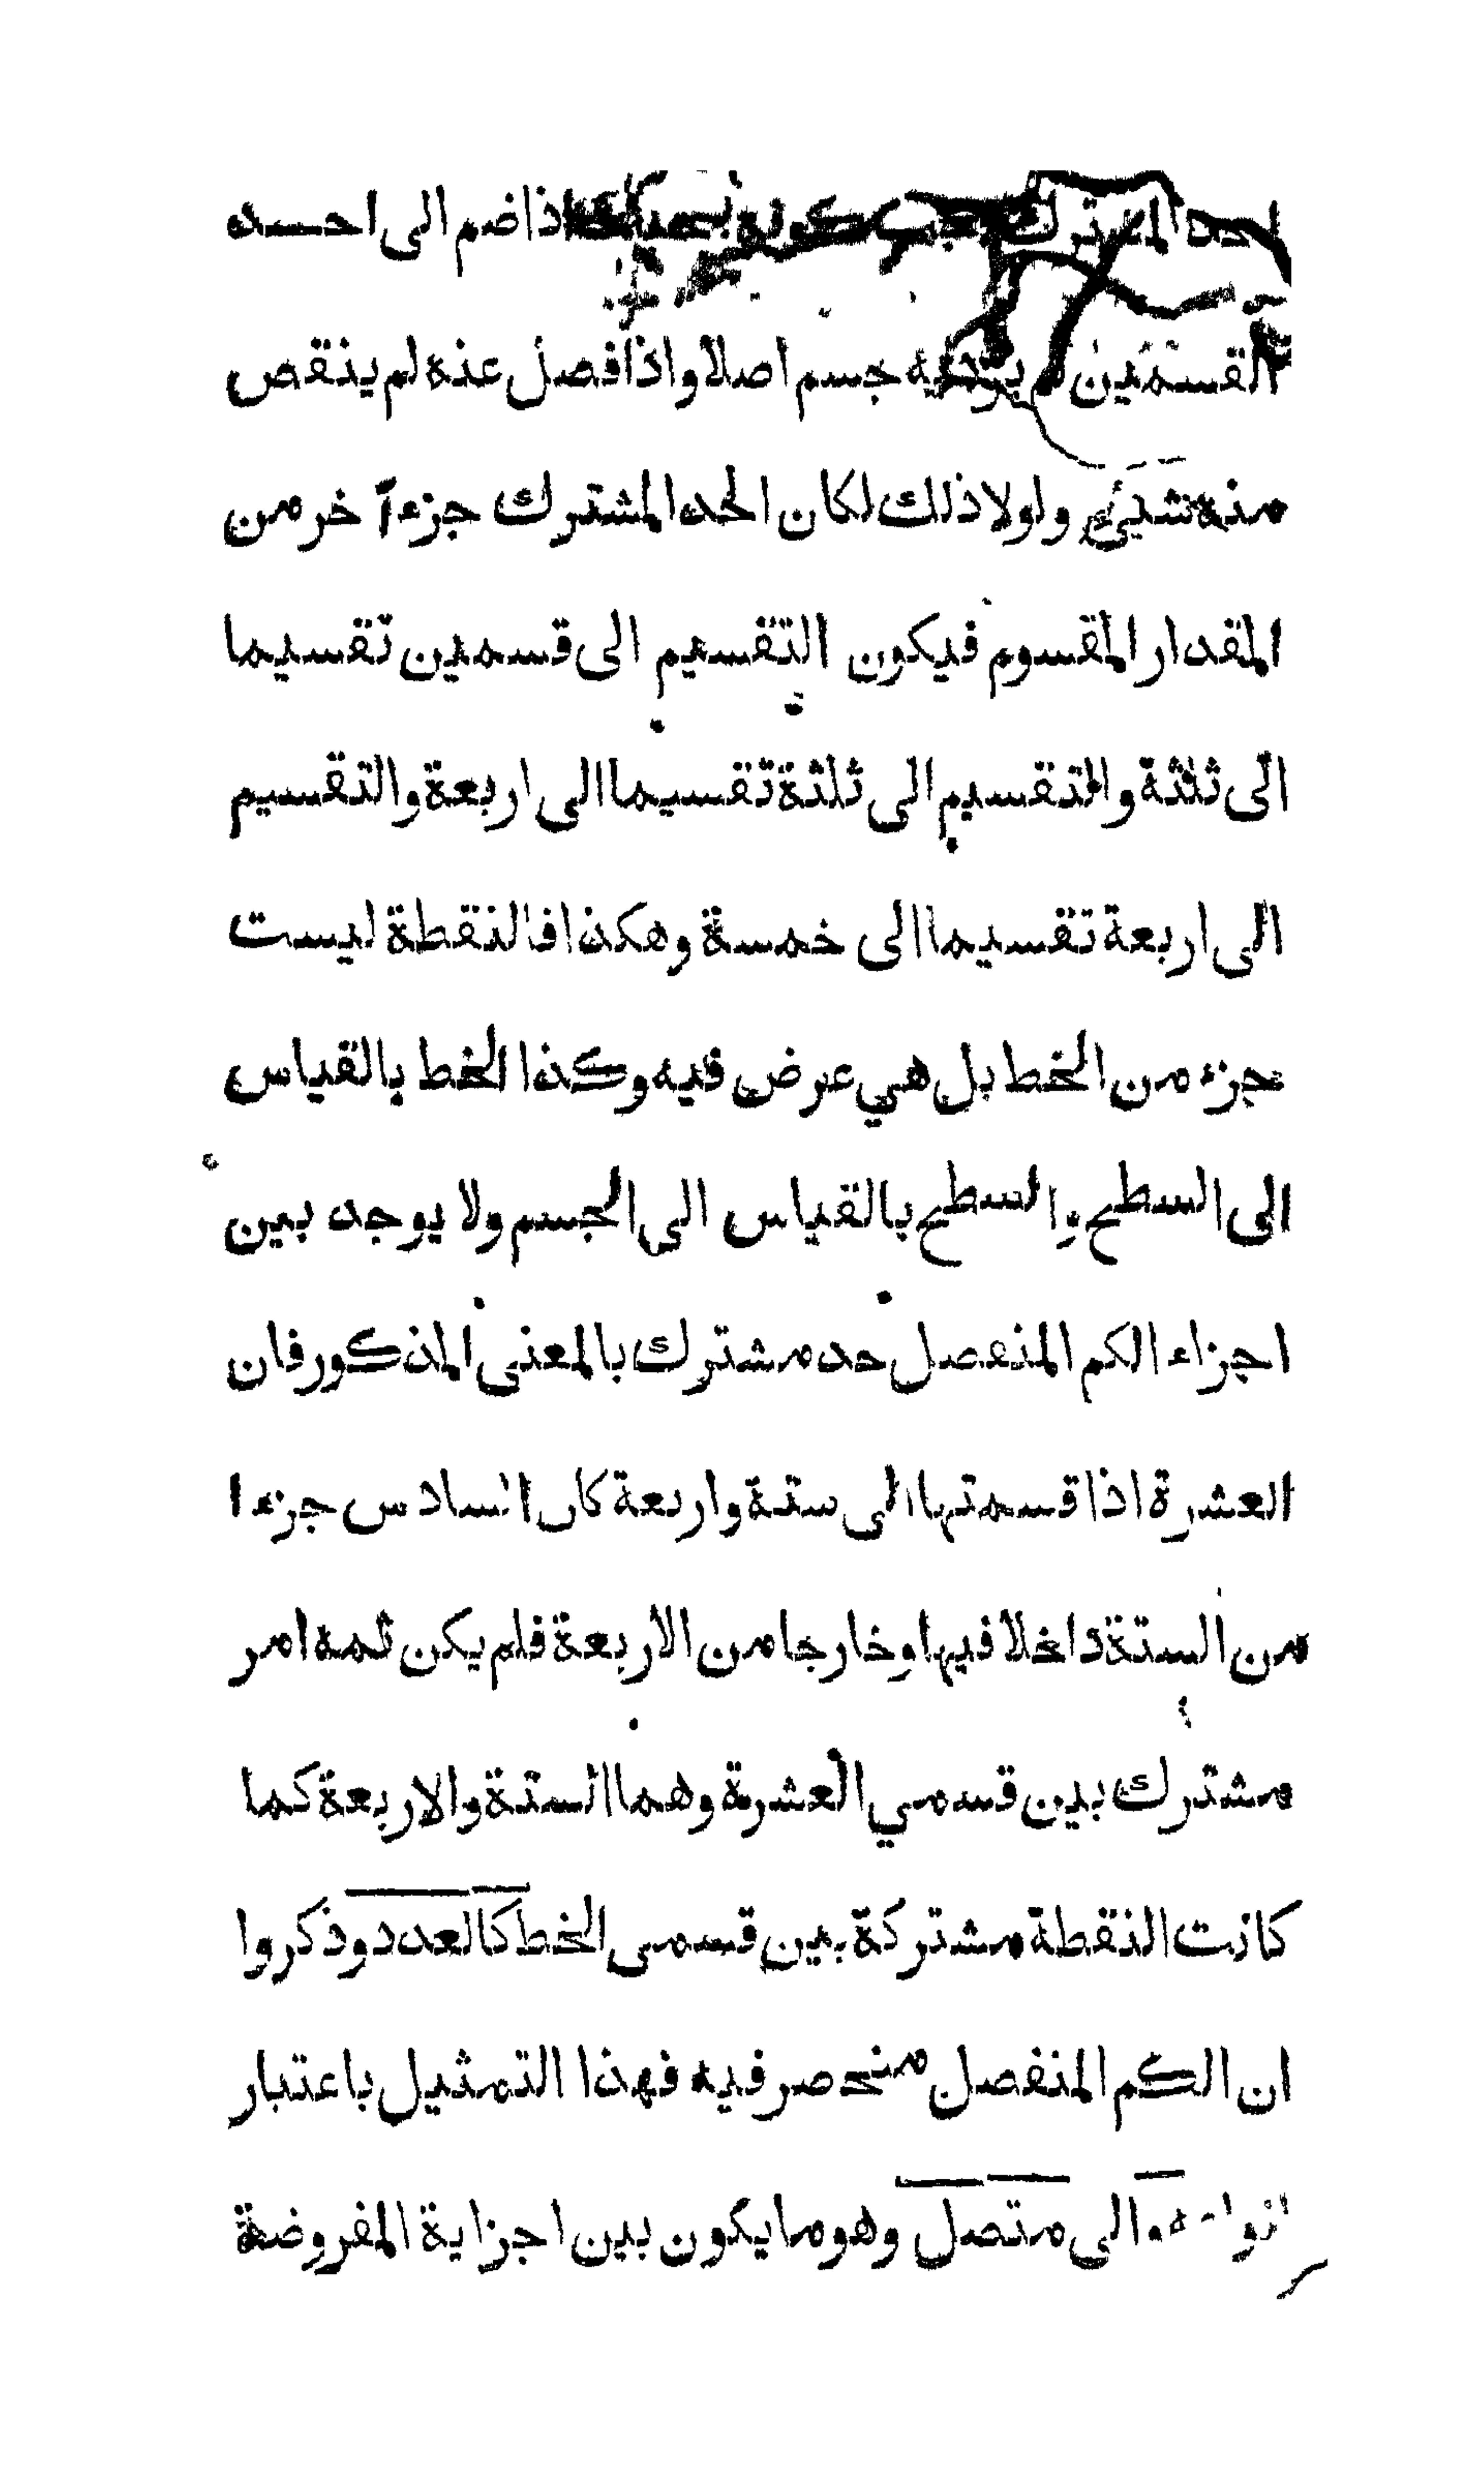 الحد المشترك يجب كونه بحيث اذا ضم الى احد
القسمين لم يزد به جسم اصلا واذا فصل عنه لم ينقص
منه شيئ ولولا ذلك لكان الحد المشترك جزءآ خر من
المقدار المقسوم فيكون التقسيم الى قسمين تقسيما
الى ثلثة والتقسيم الى ثلثة تقسيما الى اربعة والتقسيم
الى اربعة تقسيما الى خمسة وهكذا فالنقطة ليست
جزء من الخط بل هي عرض فيه وكذا الخط بالقياس
الى السطح والسطح بالقياس الى الجسم ولا يوجد بين
اجزاء الكم المنفصل حد مشترك بالمعنى المذكور فان
العشرة اذا قسمتها الى ستة واربعة كان السادس جزءا
من الستة داخلا فيها وخارجا من الاربعة فلم يكن ثمه امر
مشترك بين قسمي العشرة وهما الستة والاربعة كما
كانت النقطة مشتركة بين قسمى الخط كالعدد وذكروا
ان الكم المنفصل منحصر فيه فهذا التمثيل باعتبار
انواعه والى متصل وهو ما يكون بين اجزاية المفروضة